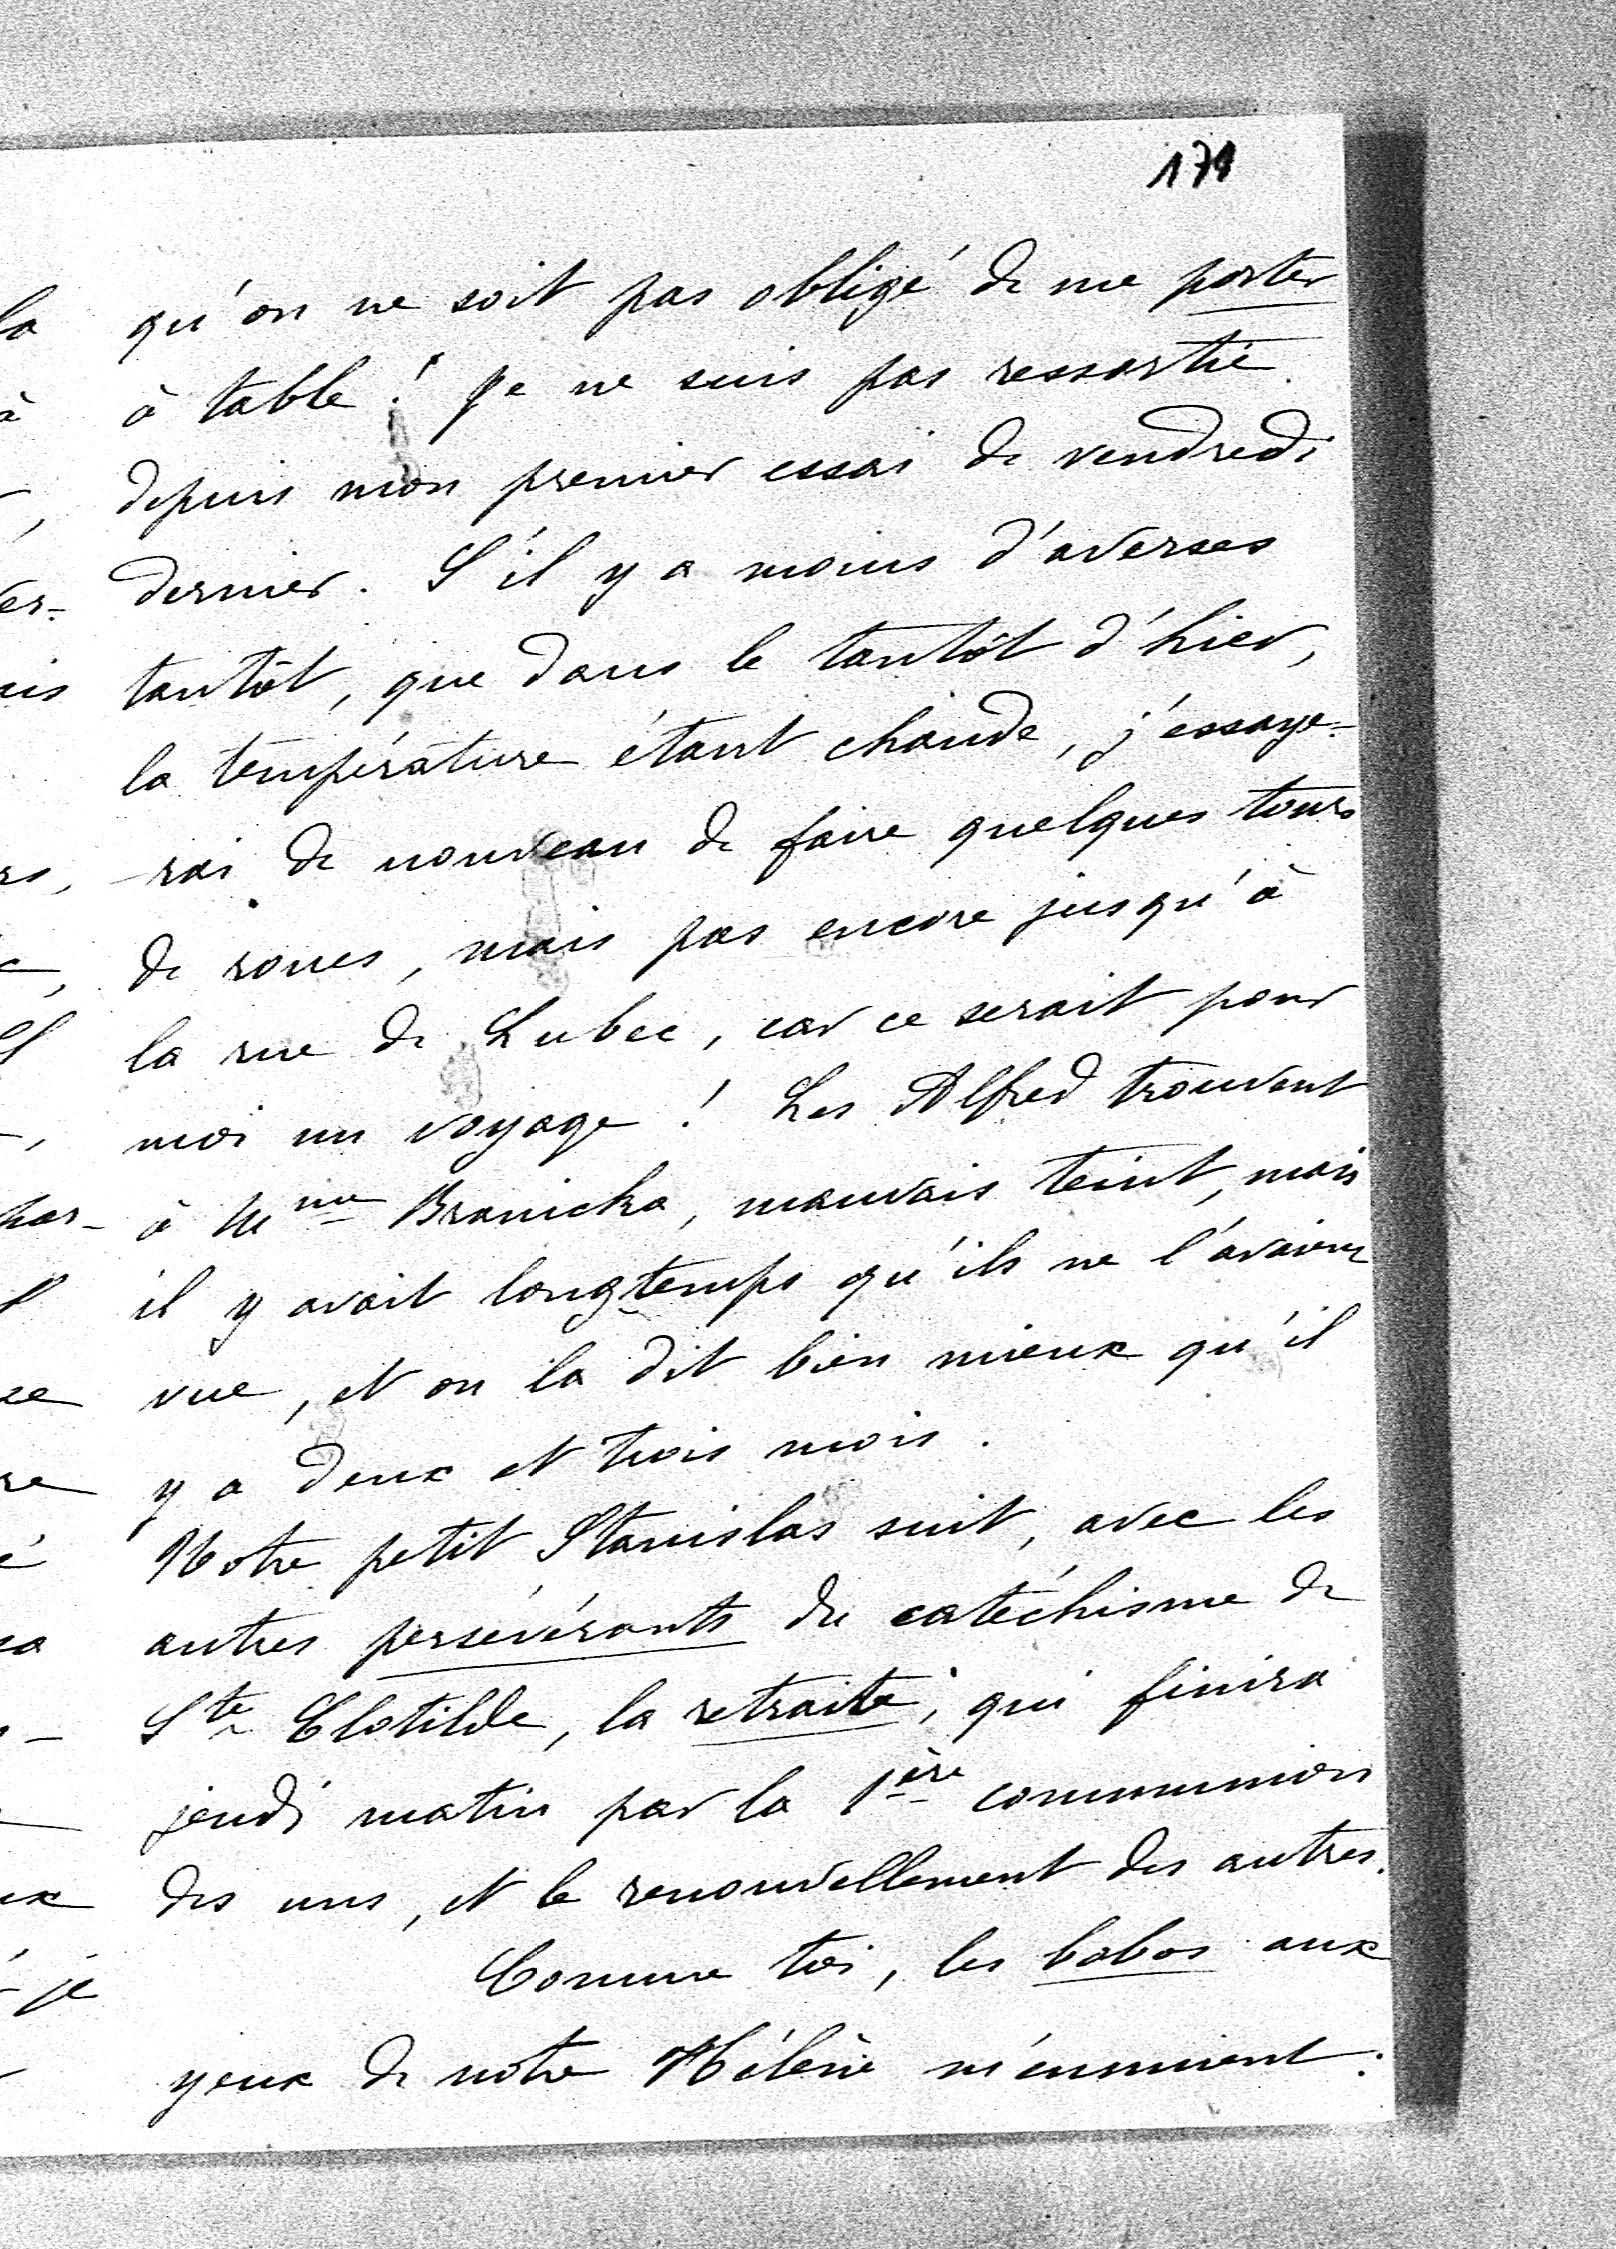 171
qu'on ne soit pas obligé de me porter
à table ! Je ne suis pas ressortie
depuis mon premier essai de vendredi
dernier. S'il y a moins d'averses
tantôt, que dans le tantôt d'hier,
la température étant chaude, j'essaye-
rai de nouveau de faire quelques tours
de roues, mais pas encore jusqu'à
la rue de Lubec, car ce serait pour
moi un voyage ! Les Alfred trouvent
à Mme Branicka, mauvais teint, mais
il y avait longtemps qu'ils ne l'avaient
vue, et on la dit bien mieux qu'il
y a deux et trois mois.
Notre petit Stanislas suit, avec les
autres persévérants du catéchisme de
Ste Clotilde, la retraite, qui finira
jeudi matin par la 1ère communion
des uns, et le renouvellement des autres.
Comme toi, les bobos aux
yeux de notre Hélène m'ennuient.